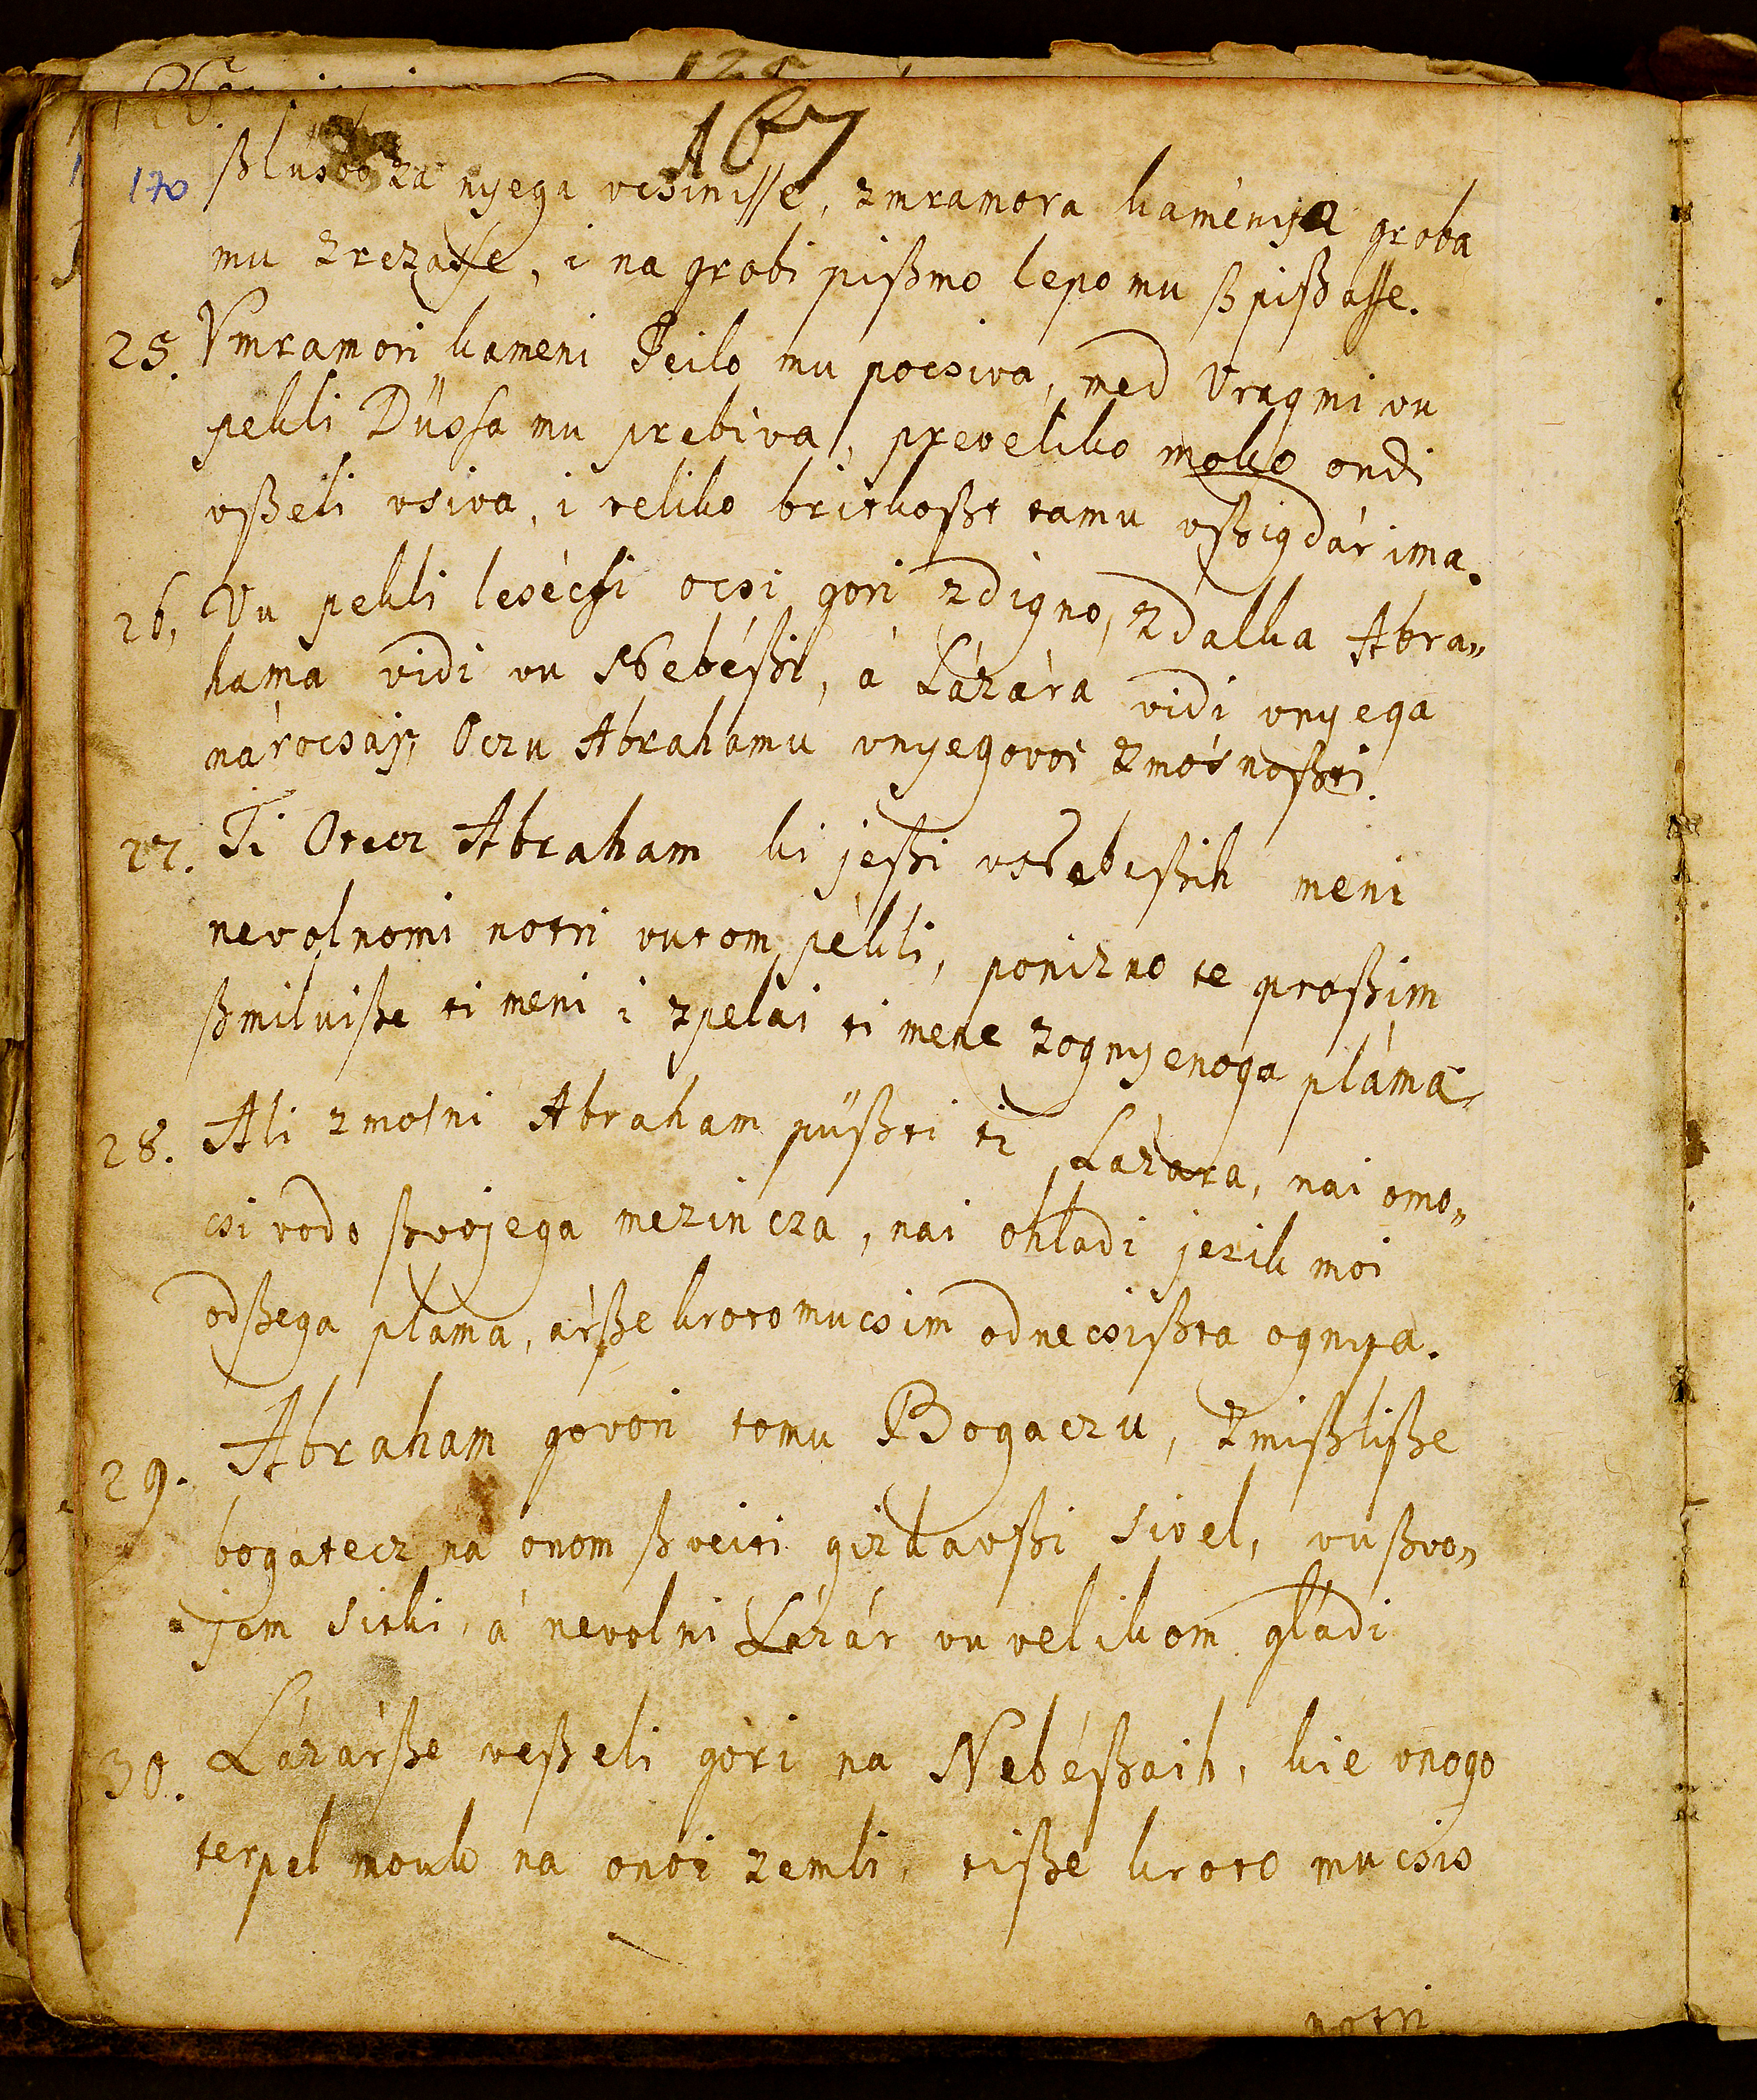 167
170 ßlusbo za nyega vcsinisse, zmramora kaménya groba
mu zrezasse, i na grobi pißmo lepo mu ßpißasse.
25. Vmramori kameni Teilo mu pocsiva, med Vragmi vu
pekli Dűssa mu prebiva, preveliko moko ondi
vßeli vsiva, i veliko britkoßt tamu vßigdár ima.
26. Vu pekli lesécsi ocsi gori zdigno, zdalka Abra„
hama vidi vu Nebéßi, á Lázára vidi vnyega
nárocsaj, Oczu Abrahamu vnyegovoi zmósnoßti.
27. Ti Otecz Abraham ki jeßi vNebeßih meni
nevolnomi notri vutom pèkli, ponizno te proßim
ßmiluiße ti meni i zpelai ti mene zognyenoga pláma
28. Ali zmosni Abraham püßti ti Lázara, nai omo„
csi vodo ßvojega mezincza, nai ohladi jezik moi
odßega plama, árße kroto mucsim odnecsißta ognya.
29. Abraham govori tomu Bogaczu, zmißliße
bogatecz na onom ßveiti gizkavßi sivel, vußvo„
jem sitki, á nevolni Lázár vu velikom gládi
30. Lázárße veßeli góri na Nebéßaih, kie vnogo
terpel mouk na onoi zemli, tiße kroto mucsis
notri